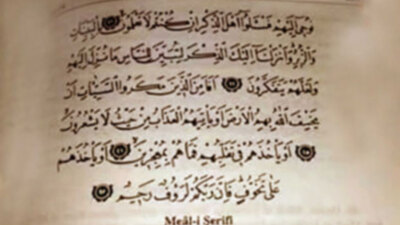 نُوحِي إِلَيْهِمْ فَسْـَٔلُوٓا أَهْلَ الذِّكْرِ إِنْ كُنْتُمْ لَا تَعْلَمُونَ ﴿٤٣﴾ بِالْبَيِّنَاتِ
وَالزُّبُرِ وَأَنْزَلْنَا إِلَيْكَ الذِّكْرَ لِتُبَيِّنَ لِلنَّاسِ مَا نُزِّلَ إِلَيْهِمْ
وَلَعَلَّهُمْ يَتَفَكَّرُونَ ﴿٤٤﴾ أَفَأَمِنَ الَّذِينَ مَكَرُوا السَّيِّـَٔاتِ أَنْ
يَخْسِفَ اللّٰهُ بِهِمُ الْأَرْضَ أَوْ يَأْتِيَهُمُ الْعَذَابُ مِنْ حَيْثُ لَا يَشْعُرُونَ
﴿٤٥﴾ أَوْ يَأْخُذَهُمْ فِي تَقَلُّبِهِمْ فَمَا هُمْ بِمُعْجِزِينَ ﴿٤٦﴾ أَوْ يَأْخُذَهُمْ
عَلَى تَخَوُّفٍ فَإِنَّ رَبَّكُمْ لَرَؤُفٌ رَحِيمٌ ﴿٤٧﴾
Meâl-i Şerifi